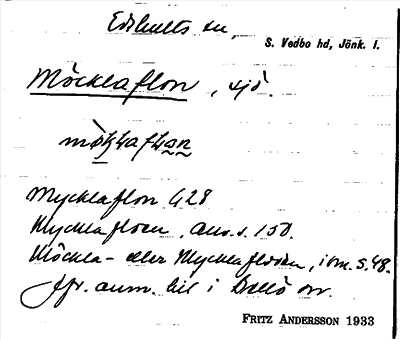 Edshults sn,
S. Vedbo hd, Jönk. l.
Möcklaflon, sjö.
Mycklaflon G28
Mycklafloen, Ans. s. 150.
Möckla- eller Myckleflodden, ibm. S. 48.
Jfr. anm. till i Bellö sn.
FRITZ ANDERSSON 1933